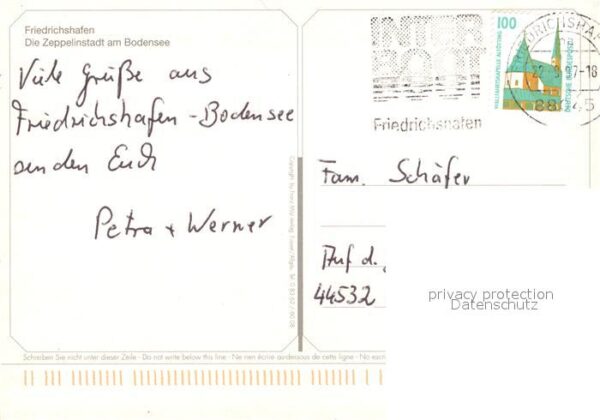 Friedrichshafen
Die Zeppelinstadt am Bodensee
Viele Grüße aus
Friedrichshafen-Bodensee
senden Euch
Petra + Werner
INTER
BOOT
Friedrichshafen
100
WALLFAHRTSKAPELLE ALTÖTTING
DEUTSCHE BUNDESPOST
Fam. Schäfer
Auf d.
44532
privacy protection
Datenschutz
Schreiben Sie nicht unter dieser Zeile · Do not write below this line · Ne rien écrire au-dessous de cette ligne · No